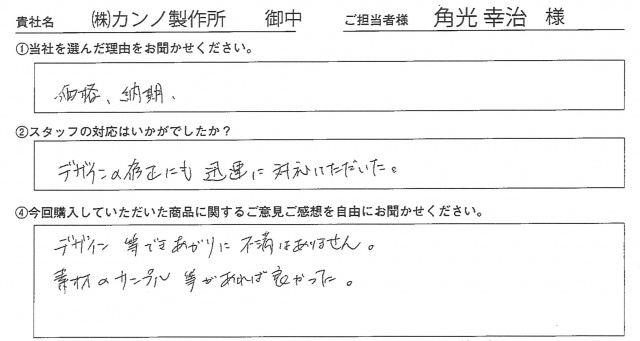 貴社名 ㈱カンノ製作所 御中 ご担当者様 角光 幸治 様
①当社を選んだ理由をお聞かせください。
価格、納期、
②スタッフの対応はいかがでしたか？
デザインの修正にも迅速に対応いただいた。
④今回購入していただいた商品に関するご意見ご感想を自由にお聞かせください。
デザイン等できあがりに不満はありません。
素材のサンプル等があれば良かった。